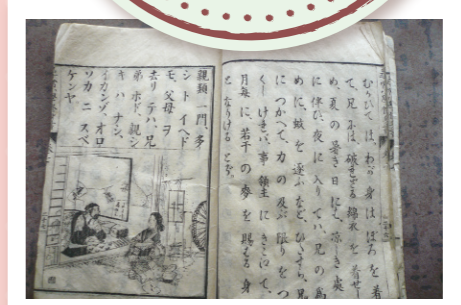 むかひて は、わが 身は ぼろ を 着
て、兄には、破れざる 綿衣 を 着せし
め、夏の 暑き 日にて、涼しき 處
に 伴ひ、夜 に 入り てハ、兄の 爲
めに、蚊 を 逐ふなど、ひたすら、兄
に つかへて、力の 及ぶ 限り を つ
くし ければ、事 領主 に きこえて、
月毎に、若干 の 麥 を 賜はる 身
と なりける とぞ。
親類 一門、多
シ ト イヘド
モ、父母 ヲ
去リ テハ、兄
弟 ホド、親シ
キ ハ ナシ、
イカンゾ、オロ
ソカ ニ スベ
ケンヤ